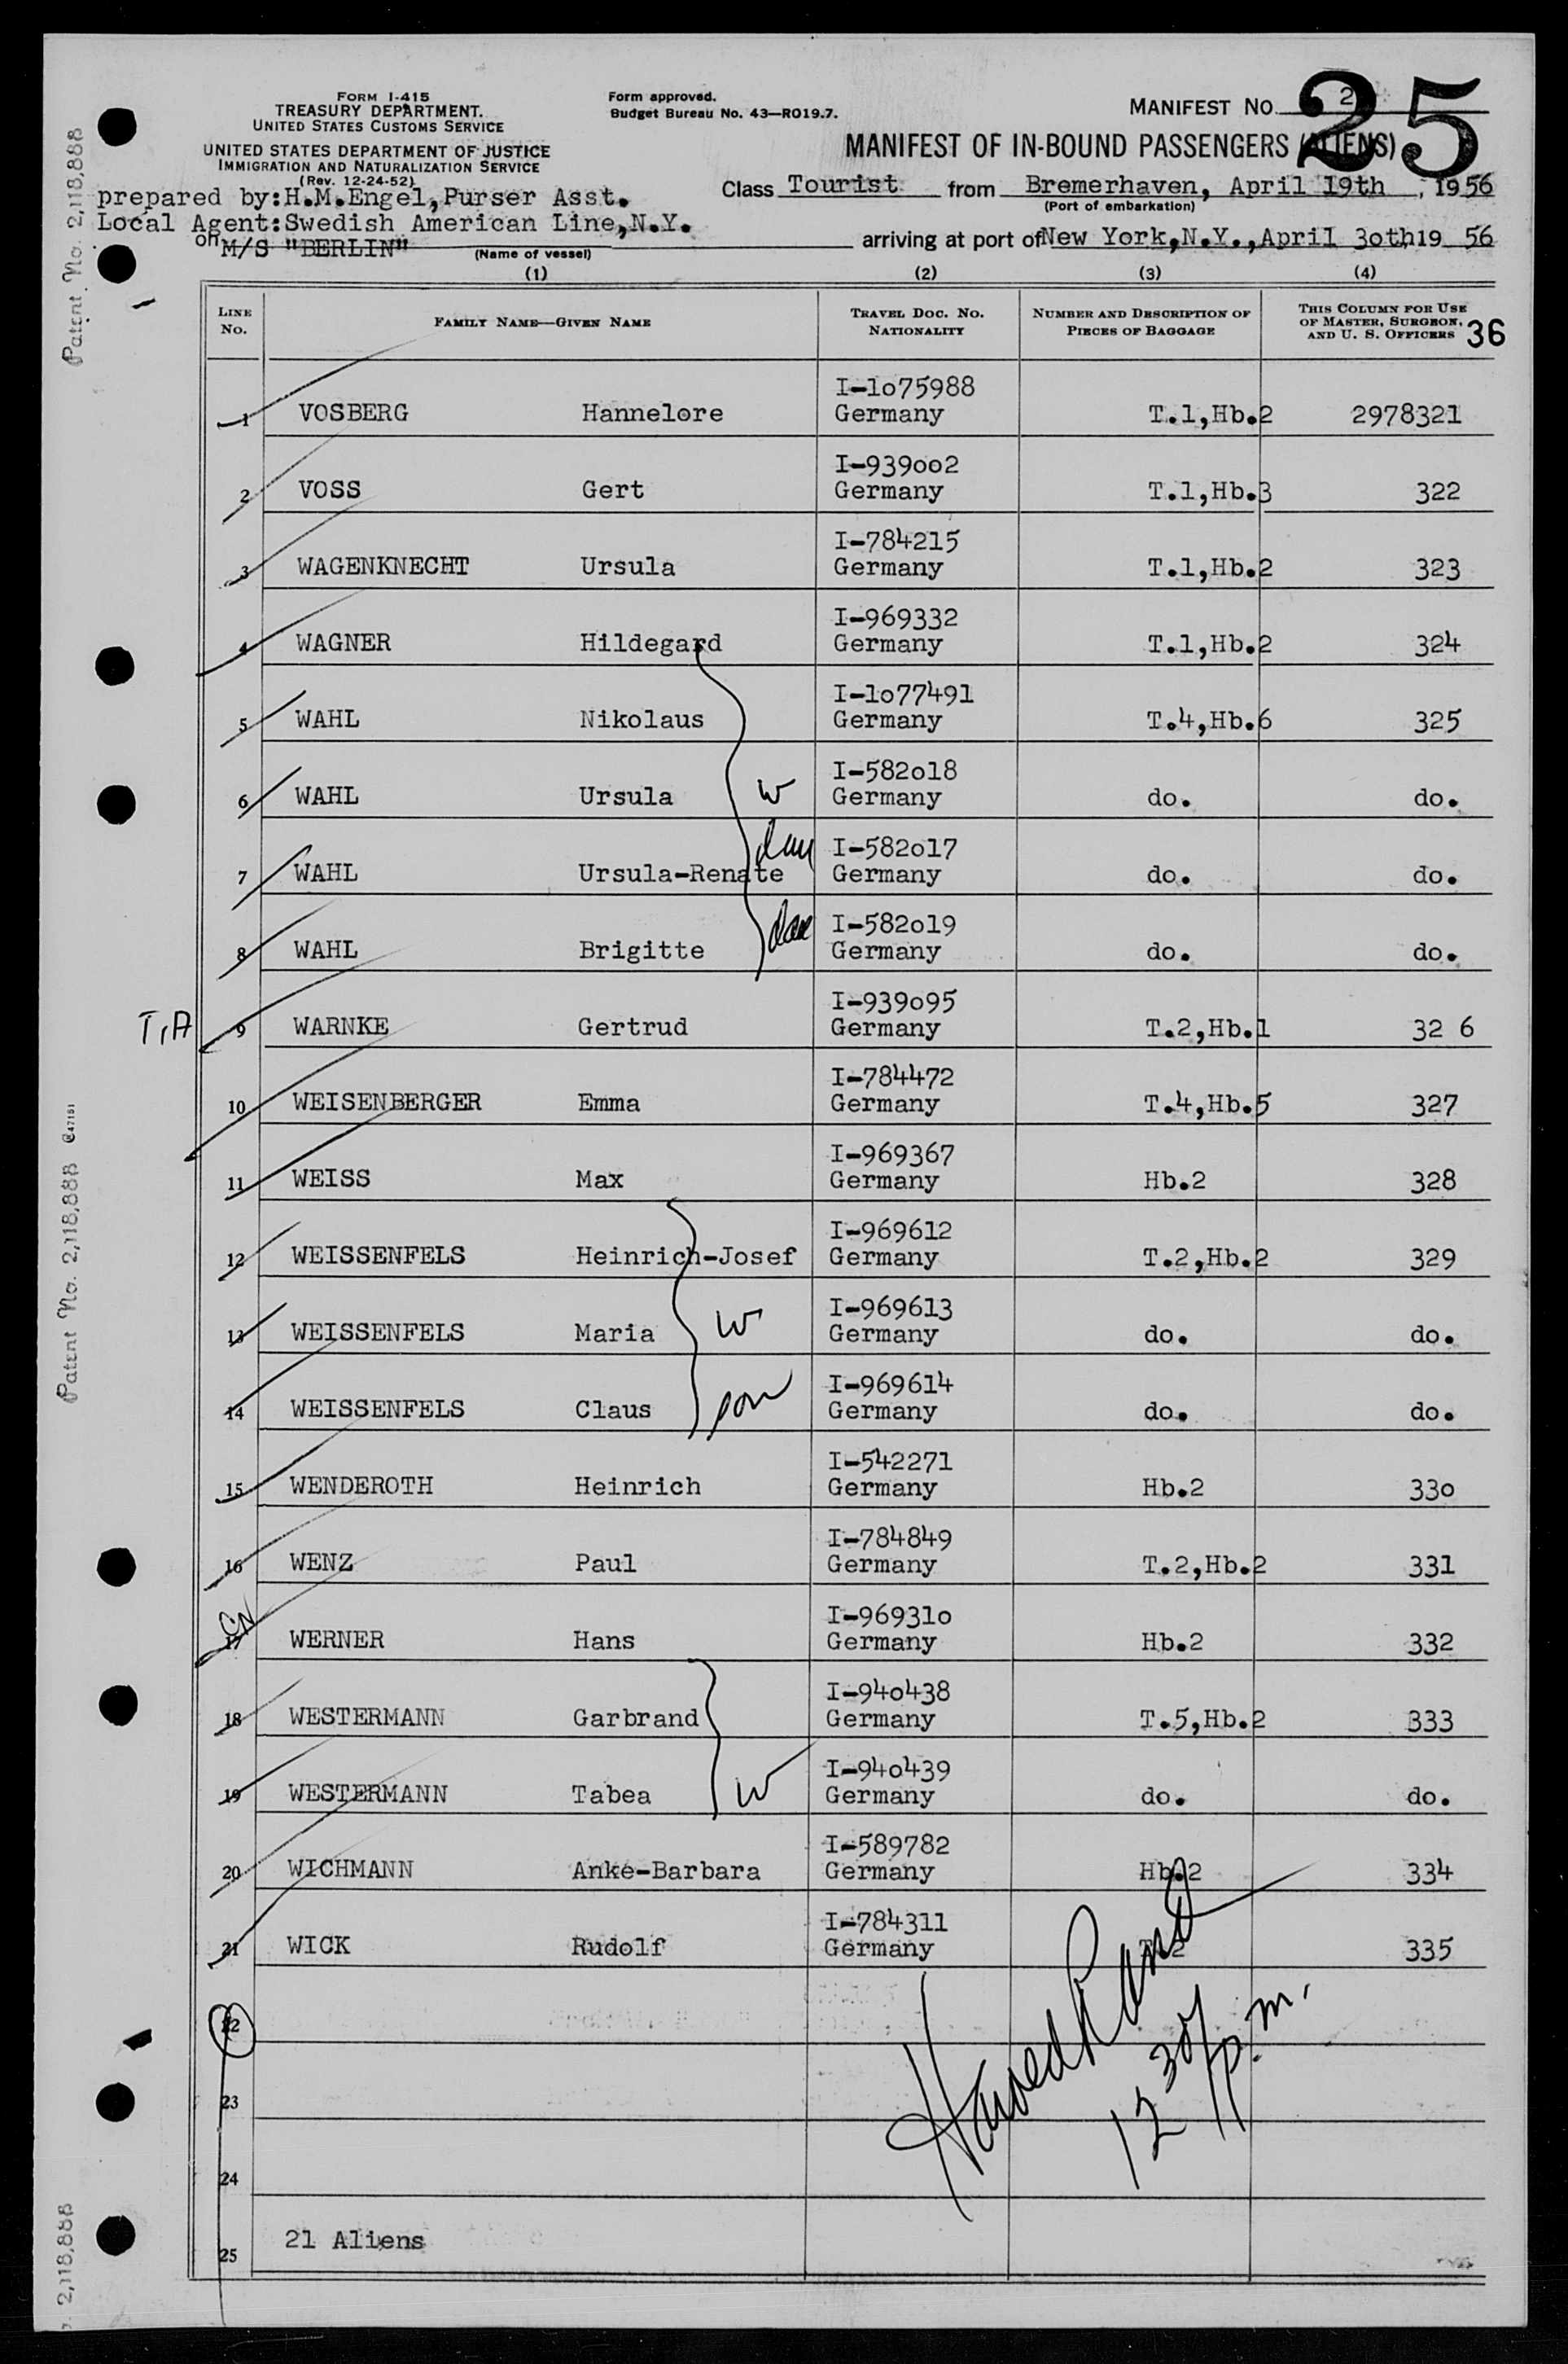 FORM I-415
TREASURY DEPARTMENT.
UNITED STATES CUSTOMS SERVICE
UNITED STATES DEPARTMENT OF JUSTICE
IMMIGRATION AND NATURALIZATION SERVICE
(Rev. 12-24-52)
Form approved.
Budget Bureau No. 43—RO19.7.
MANIFEST NO. 2
25
MANIFEST OF IN-BOUND PASSENGERS (ALIENS)
prepared by:H.M.Engel,Purser Asst.
Class Tourist from Bremerhaven, April 19th, 1956
(Port of embarkation)
Local Agent:Swedish American Line,N.Y.
on M/S "BERLIN" arriving at port of New York,N.Y.,April 3oth 19 56
(Name of vessel)
(1) (2) (3) (4)
LINE No. FAMILY NAME—GIVEN NAME TRAVEL DOC. NO. NATIONALITY NUMBER AND DESCRIPTION OF PIECES OF BAGGAGE THIS COLUMN FOR USE OF MASTER, SURGEON, AND U. S. OFFICERS 36
I-1o75988
1 VOSBERG Hannelore Germany T.1,Hb.2 2978321
I-939oo2
2 VOSS Gert Germany T.1,Hb.3 322
I-784215
3 WAGENKNECHT Ursula Germany T.1,Hb.2 323
I-969332
4 WAGNER Hildegard Germany T.1,Hb.2 324
I-1o77491
5 WAHL Nikolaus Germany T.4,Hb.6 325
I-582o18
6 WAHL Ursula W Germany do. do.
I-582o17
7 WAHL Ursula-Renate dau Germany do. do.
I-582o19
8 WAHL Brigitte dau Germany do. do.
I-939o95
T,A 9 WARNKE Gertrud Germany T.2,Hb.1 32 6
I-784472
10 WEISENBERGER Emma Germany T.4,Hb.5 327
I-969367
11 WEISS Max Germany Hb.2 328
I-969612
12 WEISSENFELS Heinrich-Josef Germany T.2,Hb.2 329
I-969613
13 WEISSENFELS Maria W Germany do. do.
I-969614
14 WEISSENFELS Claus son Germany do. do.
I-542271
15 WENDEROTH Heinrich Germany Hb.2 33o
I-784849
16 WENZ Paul Germany T.2,Hb.2 331
I-96931o
17 WERNER Hans Germany Hb.2 332
I-94o438
18 WESTERMANN Garbrand Germany T.5,Hb.2 333
I-94o439
19 WESTERMANN Tabea W Germany do. do.
I-589782
20 WICHMANN Anke-Barbara Germany Hb.2 334
I-784311
21 WICK Rudolf Germany T.2 335
22
23
24
25 21 Aliens
12 30 p.m.
Patent No. 2,118,888
Patent No. 2,118,888 C47151
2,118,888